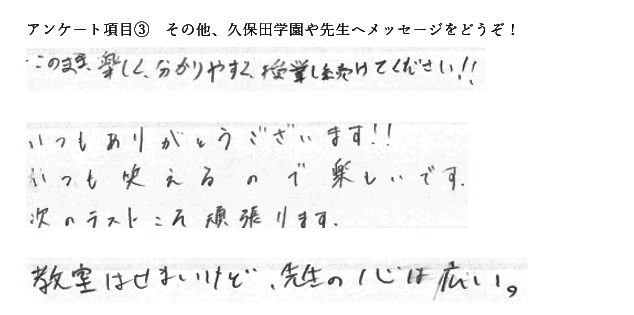 アンケート項目③　その他、久保田学園や先生へメッセージをどうぞ！
このまま、楽しく、分かりやすく、授業し続けてください!!
いつもありがとうございます!!
いつも笑えるので楽しいです.
次のテストこそ頑張ります.
教室はせまいけど、先生の心は広い。